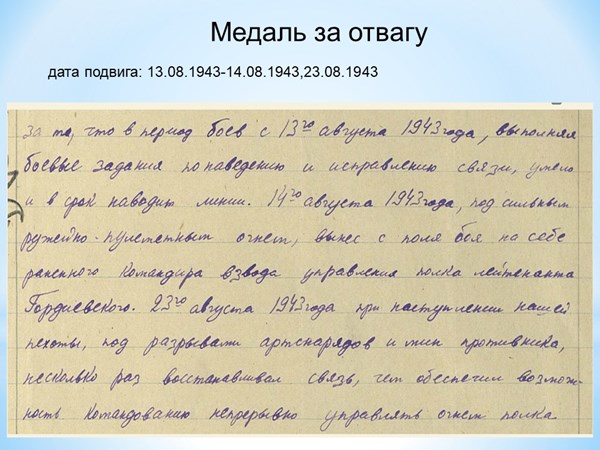 Медаль за отвагу
дата подвига: 13.08.1943-14.08.1943,23.08.1943
за то, что в период боев с 13го августа 1943 года, выполняя
боевые задания по наведению и исправлению связи, умело
и в срок наводил линии. 14го августа 1943 года, под сильным
ружейно-пулеметным огнем, вынес с поля боя на себе
раненного командира взвода управления полка лейтенанта
Гордиевского. 23го августа 1943 года при наступлении нашей
пехоты, под разрывами артснарядов и мин противника,
несколько раз восстанавливал связь, чем обеспечил возмож-
ность командованию непрерывно управлять огнем полка